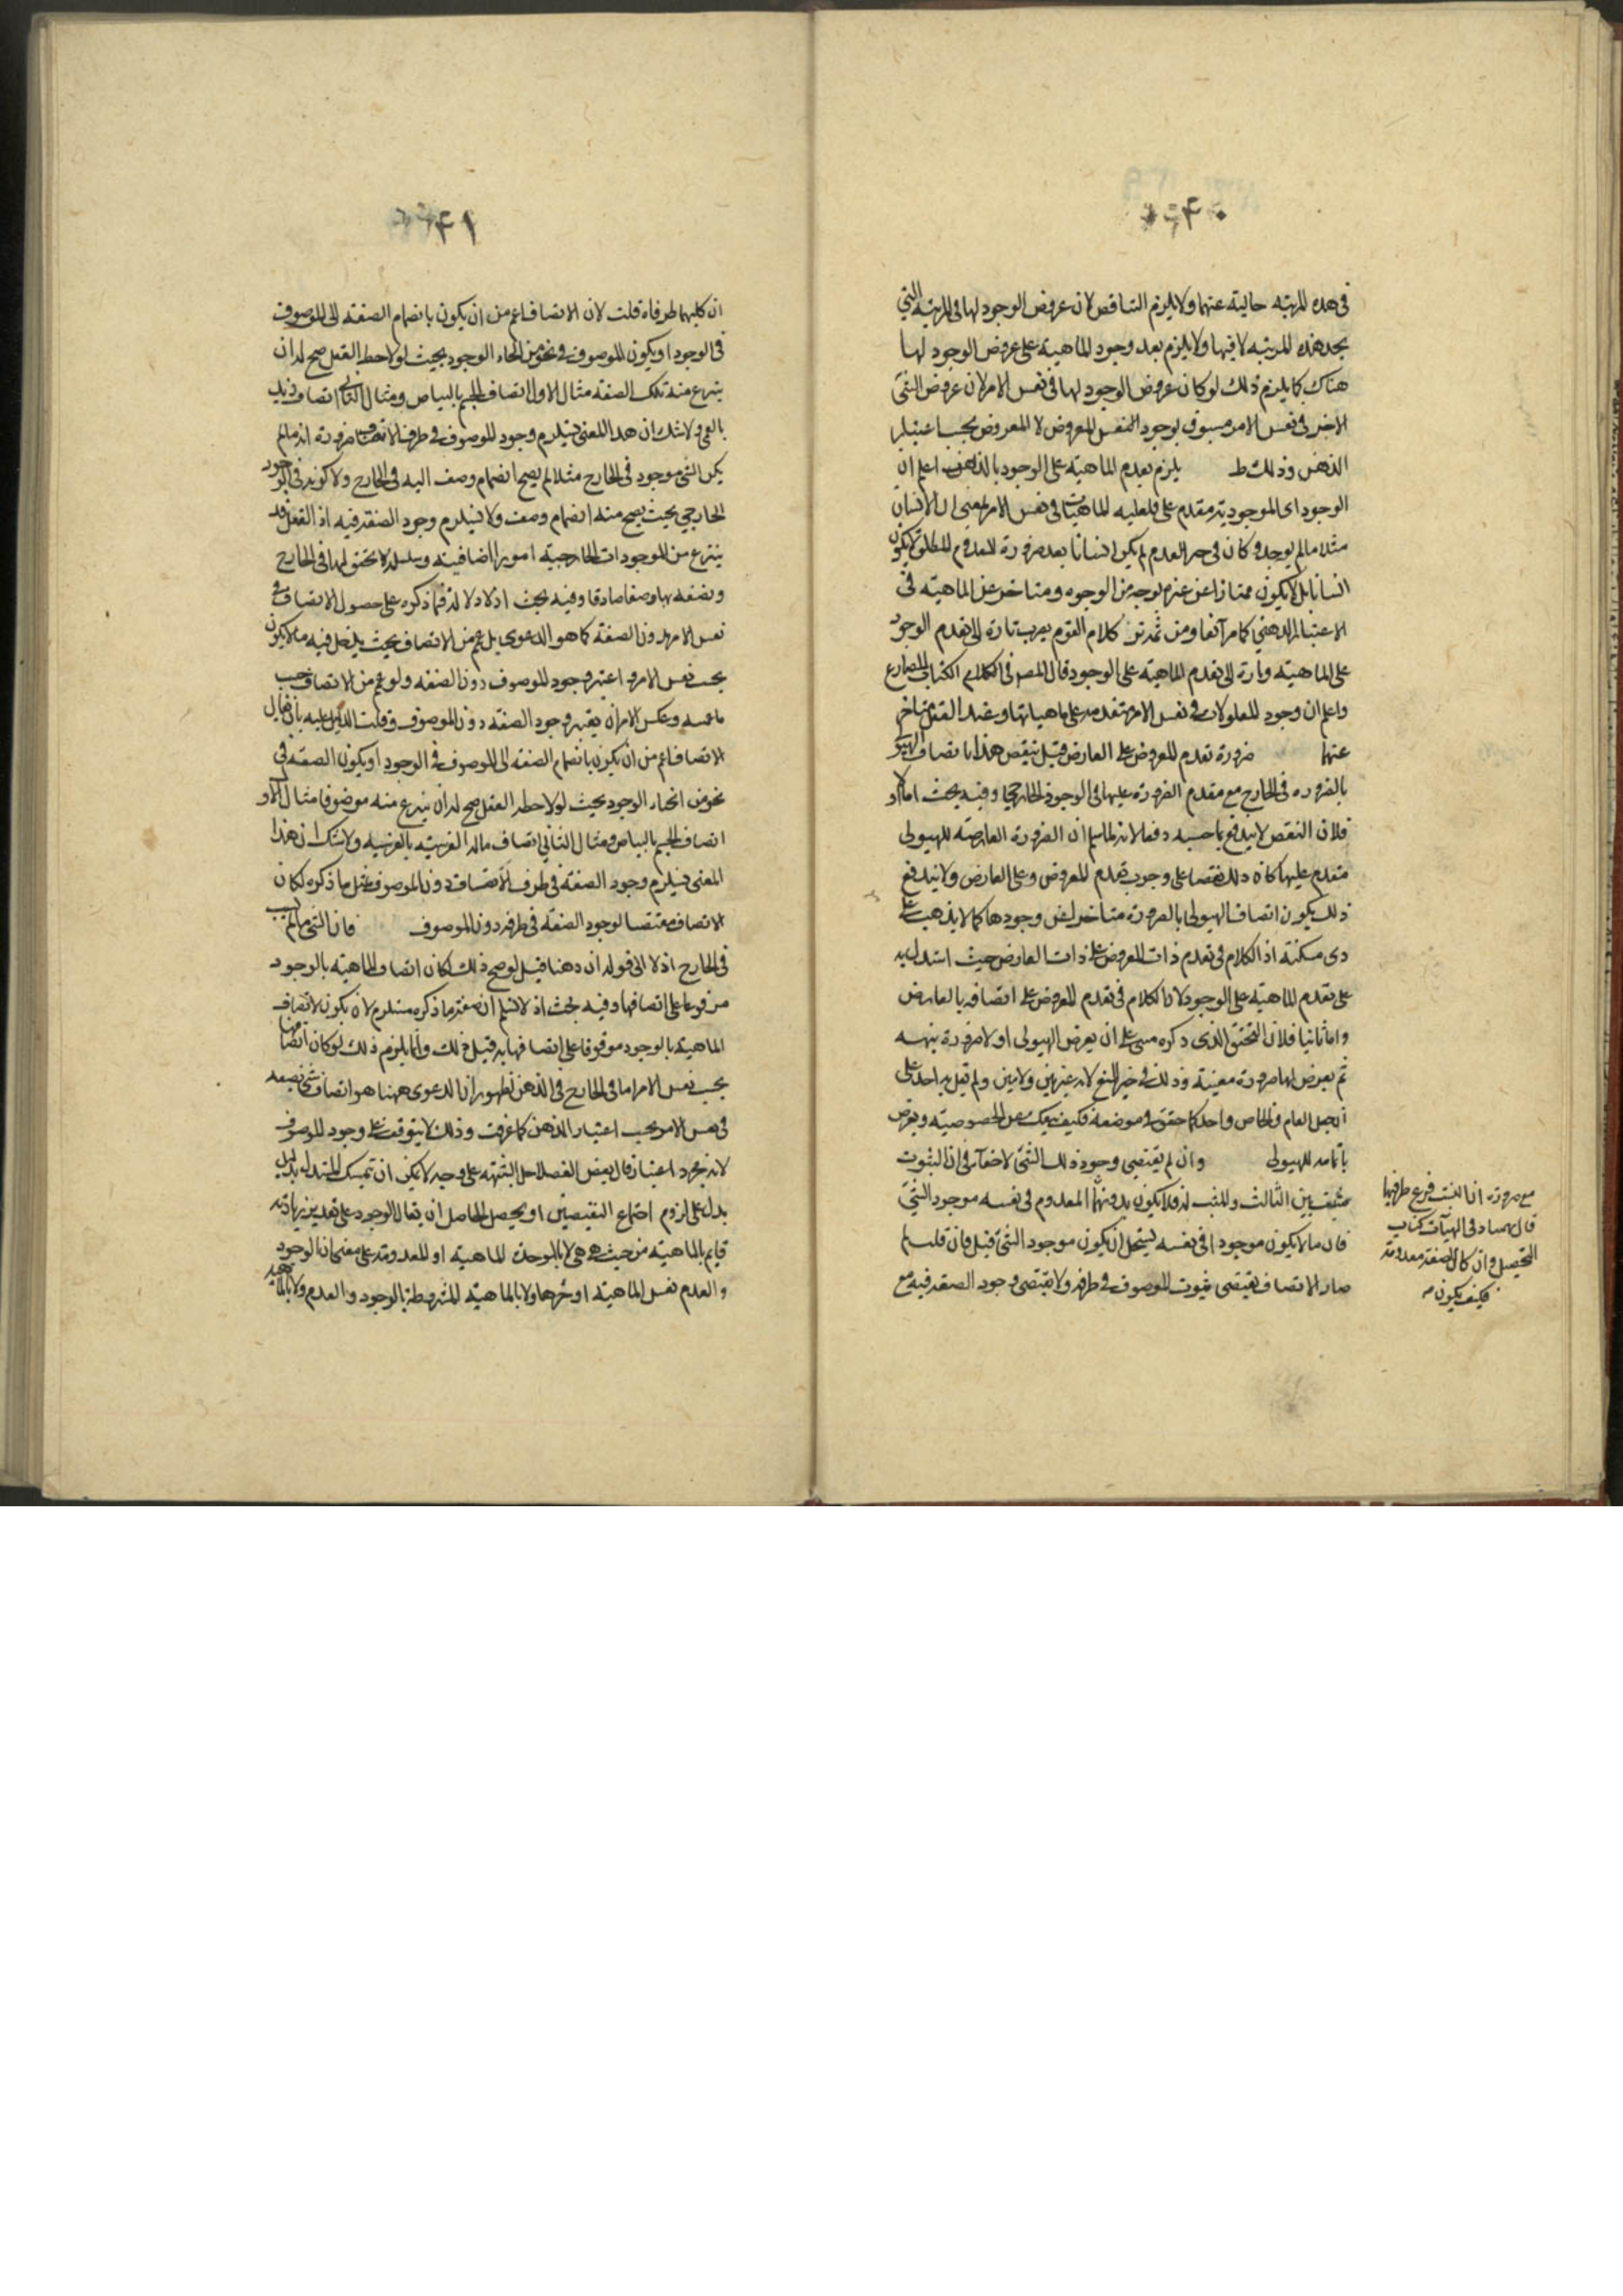 ۴۰
فى هذه المرتبه خالية عنهما ولا يلزم التناقص لان عروض الوجود لها فى المرتبة التي
بجد هذه المرتبه لا فيها ولا يلزم بعد وجود الماهية على عروض الوجود لها
هناك كما يلزم ذلك لو كان عروض الوجود لها فى نفس الامر لان عروض الشئ
الاخر فى نفس الامر مسبوق بوجود المعروض لا المعروض بحسب اعتبار
الذهن وذلك ط يلزم تقدم الماهية على الوجود بالذهن اعلم ان
الوجود اى الموجودية متقدم على فعلية الماهيات فى نفس الامر بمعنى ان الانسان
مثلا ما لم يوجد وكان فى حيز العدم لم يكن انسانا بعد ضرورة المعدوم المطلق لا يكون
انسانا بل لا يكون ممتازا عن غيره بوجه من الوجوه ومتاخر عن الماهية فى
الاعتبار الذهني كما مر آنفا ومن ثمه ترى كلام القوم يعرب تارة الى تقدم الوجود
على الماهية وتارة الى تقدم الماهية على الوجود قال المص فى الكلام الكتاب المصارع
واعلم ان وجود المعلولات فى نفس الامر متقدمة على ماهياتها وعند العقل متاخر
عنها ضرورة تقدم المعروض على العارض قيل ينقص هذا باتصاف الهيولى
بالضروره فى الخارج مع مقدم الضرورة عليها فى الوجود الخارجى وفيه بحث اما اولا
فلان النقص لا يندفع بما حسبه دفعا لانه لما سلم ان الضرورة العارضة للهيولى
متقدم عليها كان ذلك نقضا على وجوب تقدم المعروض على العارض ولا يندفع
ذلك بكون اتصاف الهيولى بالضرورة متاخرا عن وجودها كما لا يذهب على
ذى مسكنة اذ الكلام فى تقدم ذات المعروض على ذات العارض حيث استدل به
على تقدم الماهية على الوجود لا ان الكلام فى تقدم المعروض على اتصافه بالعارض
واما ثانيا فلان التحقق الذى ذكره مبنى على ان يعرض الهيولى اولا ضرورة مبهمه
ثم يعرض لها ضرورة معينة وذلك فى حيز المنع لانه غير بين ولا مبين ولم يقل به احد على
ان جعل العام والخاص واحد كما حقق فى موضعه فكيف يمكن الخصوصية ويعرض
باتمامه للهيولى وان لم يقتضى وجود ذلك الشئ لا خفاء فى ان الثبوت
نسبة بين الثابت والمثبت له فلا يكون بدونهما المعدوم فى نفسه موجود الشئ
فان ما لا يكون موجودا فى نفسه يستحيل ان يكون موجود الشئ قيل فان قلت لم
صار الاتصاف يقتضى ثبوت الموصوف فى طرفه ولا يقتضى وجود الصفه فيه مع
مع ضرورة ان النسب فرع طرفيها
قال بهمنيار فى الهيآت كتاب
التحصيل وان كان الصفة معدومة
فكيف يكون
۴۱
ان كليهما طرفاه قلت لان الاتصاف اعم من ان يكون بانضمام الصفة الى الموصوف
فى الوجود او يكون الموصوف فى نحو من انحاء الوجود بحيث لو لاحظه العقل صح له ان
ينتزع منه تلك الصفه مثال الاول اتصاف الجسم بالبياض ومثال الثانى اتصاف زيد
بالعمى ولا شك ان هذا المعنى يستلزم وجود الموصوف فى طرف الاتصاف ضرورة انه ما لم
يكن الشئ موجود فى الخارج مثلا لم يصح انضمام وصف اليه فى الخارج ولا كونه فى الوجود
الخارجي بحيث يصح منه انضمام وصف ولا يستلزم وجود الصفه فيه اذ العقل قد
ينتزع من الموجودات الخارجية امورا اضافية وسلبية لا تحقق لها فى الخارج
ويصفه بها وصفا صادقا وفيه بحث اذ لا دلالة فيما ذكره على حصول الاتصاف فى
نفس الامر بدون الصفة كما هو الدعوى بل عم من الاتصاف بحيث يدخل فيه ما لا يكون
بحسب نفس الامر واعتبر وجود الموصوف دون الصفه ولو عم من الاتصاف بحسب
ما عممه وعكس الامر ان يعتبر وجود الصفه دون الموصوف وقلب الدليل عليه بان يقال
الاتصاف اعم من ان يكون بانضمام الصفه الى الموصوف فى الوجود او يكون الصفه فى
نحو من انحاء الوجود بحيث لو لاحظه العقل صح له ان ينتزع منه موضوفا مثال الاول
اتصاف الجسم بالبياض ومثال الثاني اتصاف ماله الغريبة بالغريبه ولا شك ان هذا
المعنى يستلزم وجود الصفه فى طرف الاتصاف دون الموصوف بمثل ما ذكره لكان
الاتصاف مقتضيا لوجود الصفه فى طرفه دون الموصوف فان الشئ ما لم يثبت
فى الخارج اذلا الى قوله ان ذهنا قيل لو صح ذلك لكان اتصاف الماهيه بالوجود
موقوفا على اتصافها وفيه بحث اذ لا نسلم ان صحة ما ذكره مستلزم لان يكون الاتصاف
الماهية بالوجود موقوفا على اتصافها به قبل ذلك وانما يلزم ذلك لو كان اتصافها
بحسب نفس الامر اما فى الخارج فى الذهن لظهور ان الدعوى ههنا هو اتصاف شئ بصفه
فى نفس الامر بحسب اعتبار الذهن كما عرفت وذلك لا يتوقف على وجود الموصوف
لانه مجرد اعتبار قال بعض الفضلا حل الشبهه على وجه لا يمكن ان يتمسك المستدل بدليل
يدل على لزوم اجتماع النقيضين او تحصيل الحاصل ان يقال الوجود على تقدير زيادته
قايم بالماهية من حيث هى هى لا بالموجدة الماهيه او المعدومة على معنى ان الوجود
والعدم نفس الماهية او جزءها ولا بالماهيه المشروطة بالوجود والعدم ولا بالماهية